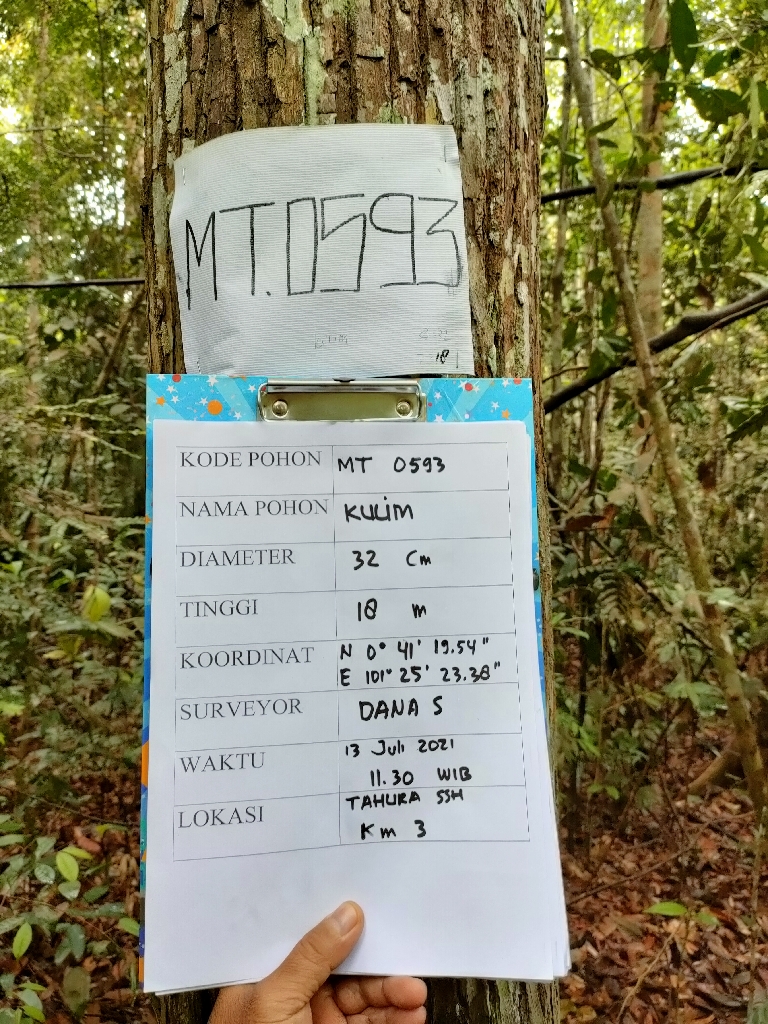 MT.0593
18
KODE POHON MT 0593
NAMA POHON KULIM
DIAMETER 32 Cm
TINGGI 18 m
KOORDINAT N 0° 41' 19.54"
E 101° 25' 23.38"
SURVEYOR DANA S
WAKTU 13 Juli 2021
11.30 WIB
LOKASI TAHURA SSH
Km 3